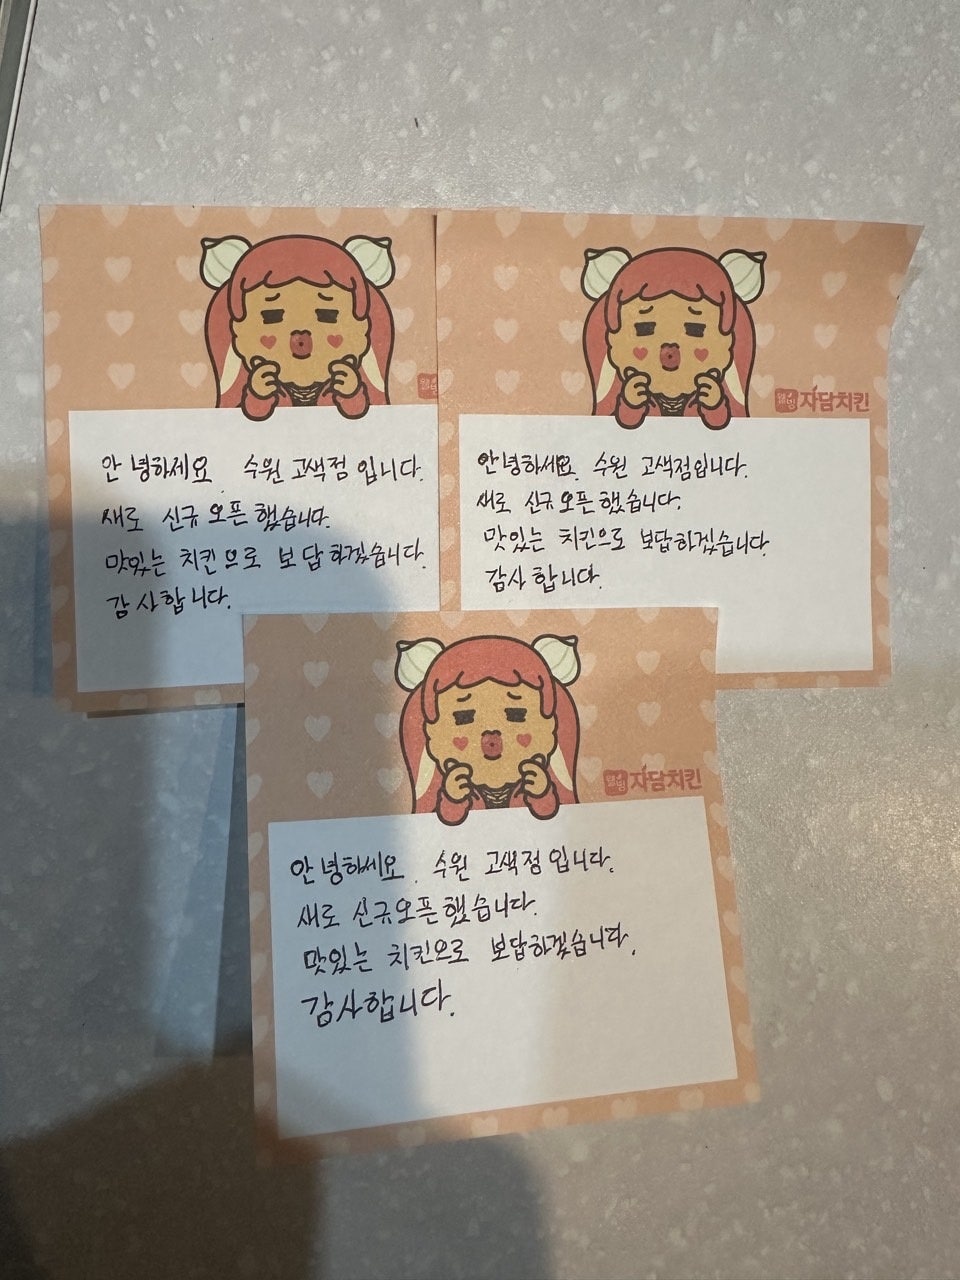 웰빙
안녕하세요. 수원 고색점 입니다.
새로 신규오픈 했습니다.
맛있는 치킨으로 보답하겠습니다.
감사합니다.
웰빙 자담치킨
안녕하세요. 수원 고색점입니다.
새로 신규오픈 했습니다.
맛있는 치킨으로 보답하겠습니다.
감사합니다.
웰빙 자담치킨
안녕하세요. 수원 고색점 입니다.
새로 신규오픈했습니다.
맛있는 치킨으로 보답하겠습니다.
감사합니다.